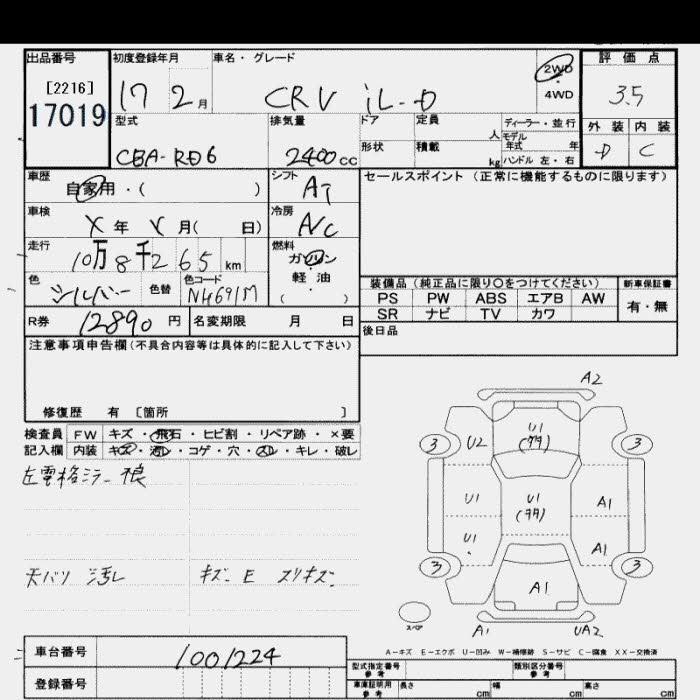 出品番号 初度登録年月 車名・グレード 2WD 4WD 評価点
[2216]
17019 17 2月 CRV iL-D 3.5
型式 排気量 ドア 定員 人 ディーラー・並行 外装 内装
CBA-RD6 2400cc 形状 積載 kg モデル年式 年 ハンドル 左・右 D C
車歴 自家用・( ) シフト AT セールスポイント(正常に機能するものに限ります)
車検 X年 月( 日) 冷房 A/C
走行 10万8千265km 燃料 ガソリン 軽油 ( )
色 シルバー 色替 色コード NH691M 装備品(純正品に限り○をつけてください) 新車保証書
PS PW ABS エアB AW 有・無
SR ナビ TV カワ
R券 12890円 名変期限 月 日 後日品
注意事項申告欄(不具合内容等は具体的に記入して下さい)
修復歴 有 〔箇所 〕
検査員 FW キズ・飛石・ヒビ割・リペア跡・×要
記入欄 内装 キズ・汚レ・コゲ・穴・スレ・キレ・破レ
左電格ミラー
天バリ 汚レ キズ E スリキズ
A2
U1
(タタ)
3 U2 3
U1 U1
(タタ) A1
U1 A1
3 A1 3
スペア A1 UA2
A-キズ E-エクボ U-凹み W-補修跡 S-サビ C-腐食 XX-交換済
車台番号 1001224
登録番号
型式指定番号 参考 類別区分番号 参考
車庫証明用 参考 長さ cm 幅 cm 高さ cm